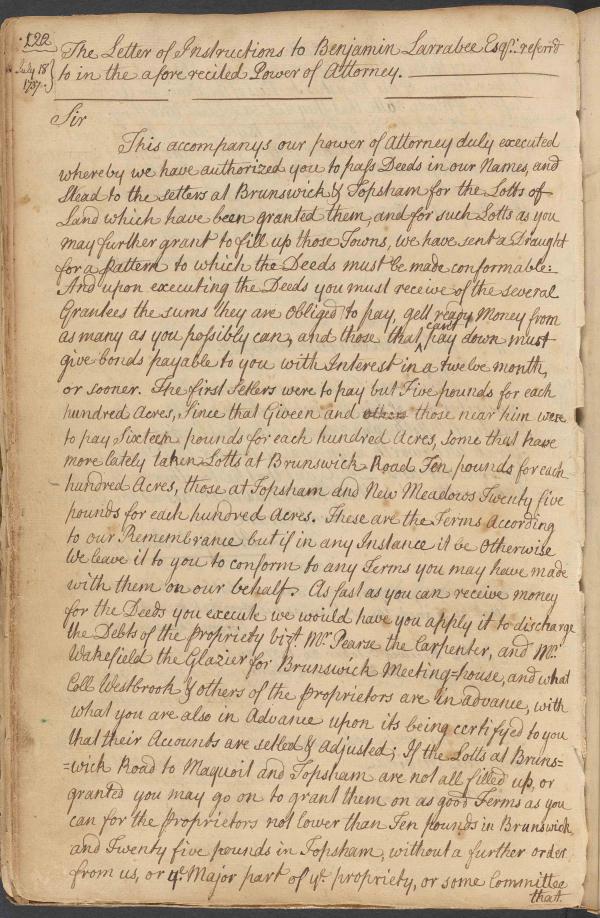 122
July 18
1737.
The Letter of Instructions to Benjamin Larrabee Esqr. referr'd
to in the afore recited Power of Attorney.
Sir
This accompanys our power of Attorney duly executed
whereby we have authorized you to pass Deeds in our Names, and
Stead to the setlers at Brunswick & Topsham for the Lotts of
Land which have been granted them, and for such Lotts as you
may further grant to fill up those Towns, we have sent a Draught
for a pattern to which the Deeds must be made conformable:
And upon executing the Deeds you must receive of the several
Grantees the sums they are obliged to pay, gett ready Money from
as many as you possibly can, and those that cant pay down must
give bonds payable to you with Interest in a twelve month,
or sooner. The first Setlers were to pay but Five pounds for each
hundred Acres, Since that Giveen and others those near him were
to pay Sixteen pounds for each hundred Acres, some that have
more lately taken Lotts at Brunswick Road Ten pounds for each
hundred Acres, those at Topsham and New Meadows Twenty five
pounds for each hundred Acres. These are the Terms According
to our Remembrance but if in any Instance it be Otherwise
We leave it to you to conform to any Terms you may have made
with them on our behalf. As fast as you can receive money
for the Deeds you execute we would have you apply it to discharge
the Debts of the Propriety vizt. Mr. Pearse the Carpenter, and Mr.
Wakefield the Glazier for Brunswick Meeting-house, and what
Coll Westbrook & others of the Proprietors are in advance, with
what you are also in Advance upon its being certifyed to you
that their Accounts are setled & adjusted; If the Lotts at Bruns=
=wick Road to Maquoit and Topsham are not all filled up, or
granted you may go on to grant them on as good Terms as you
can for the Proprietors not lower than Ten pounds in Brunswick
and Twenty five pounds in Topsham, without a further order
from us, or ye. Major part of ye. propriety, or some Committee
that